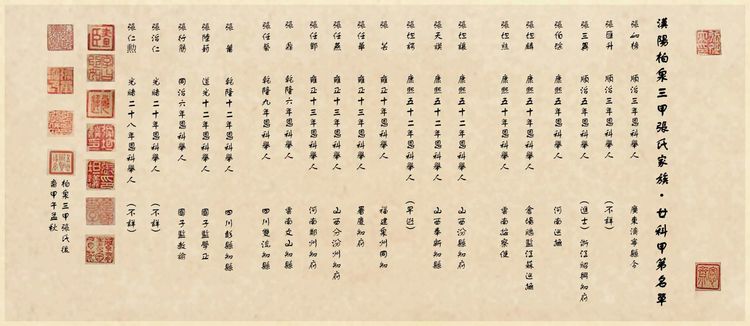 漢陽柏泉三甲張氏家族·廿科甲第名單
張 積 順治三年恩科舉人 廣東 寧縣令
張 升 順治三年恩科舉人 (不詳)
張三異 順治三年恩科舉人 (進士) 浙江紹興知府
張伯琮 康熙五十年恩科舉人 河南巡撫
張坦麟 康熙五十年恩科舉人 倉儲總監江蘇巡撫
張坦熊 康熙五十年恩科舉人 雲南按察使
張坦讓 康熙五十二年恩科舉人 山西 縣知縣
張天祺 康熙五十二年恩科舉人 山西奉新知縣
張坦 康熙五十二年恩科舉人 (早逝)
張 雍正十三年恩科舉人 福建泉州同知
張任華 雍正十三年恩科舉人 肇慶知府
張任燕 雍正十三年恩科舉人 山西汾州知府
張任鄧 雍正十三年恩科舉人 河南鄭州知府
張鼎 乾隆六年恩科舉人 雲南文山知縣
張任 乾隆九年恩科舉人 四川雙流知縣
張 乾隆十二年恩科舉人 四川彭縣知縣
張陸 道光十二年恩科舉人 國子監學正
張行簡 同治六年恩科舉人 國子監教諭
張治仁 光緒二十八年恩科舉人 (不詳)
張仁勲 光緒二十八年恩科舉人 (不詳)
柏泉三甲張氏後
裔甲午孟秋